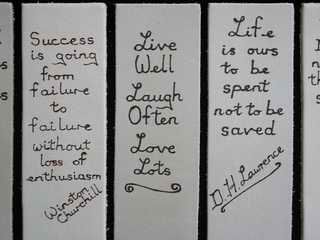 Success
is going
from
failure
to
failure
without
loss of
enthusiasm
Winston
Churchill
Live
Well
Laugh
Often
Love
Lots
Life
is ours
to be
spent
not to be
saved
D.H. Lawrence